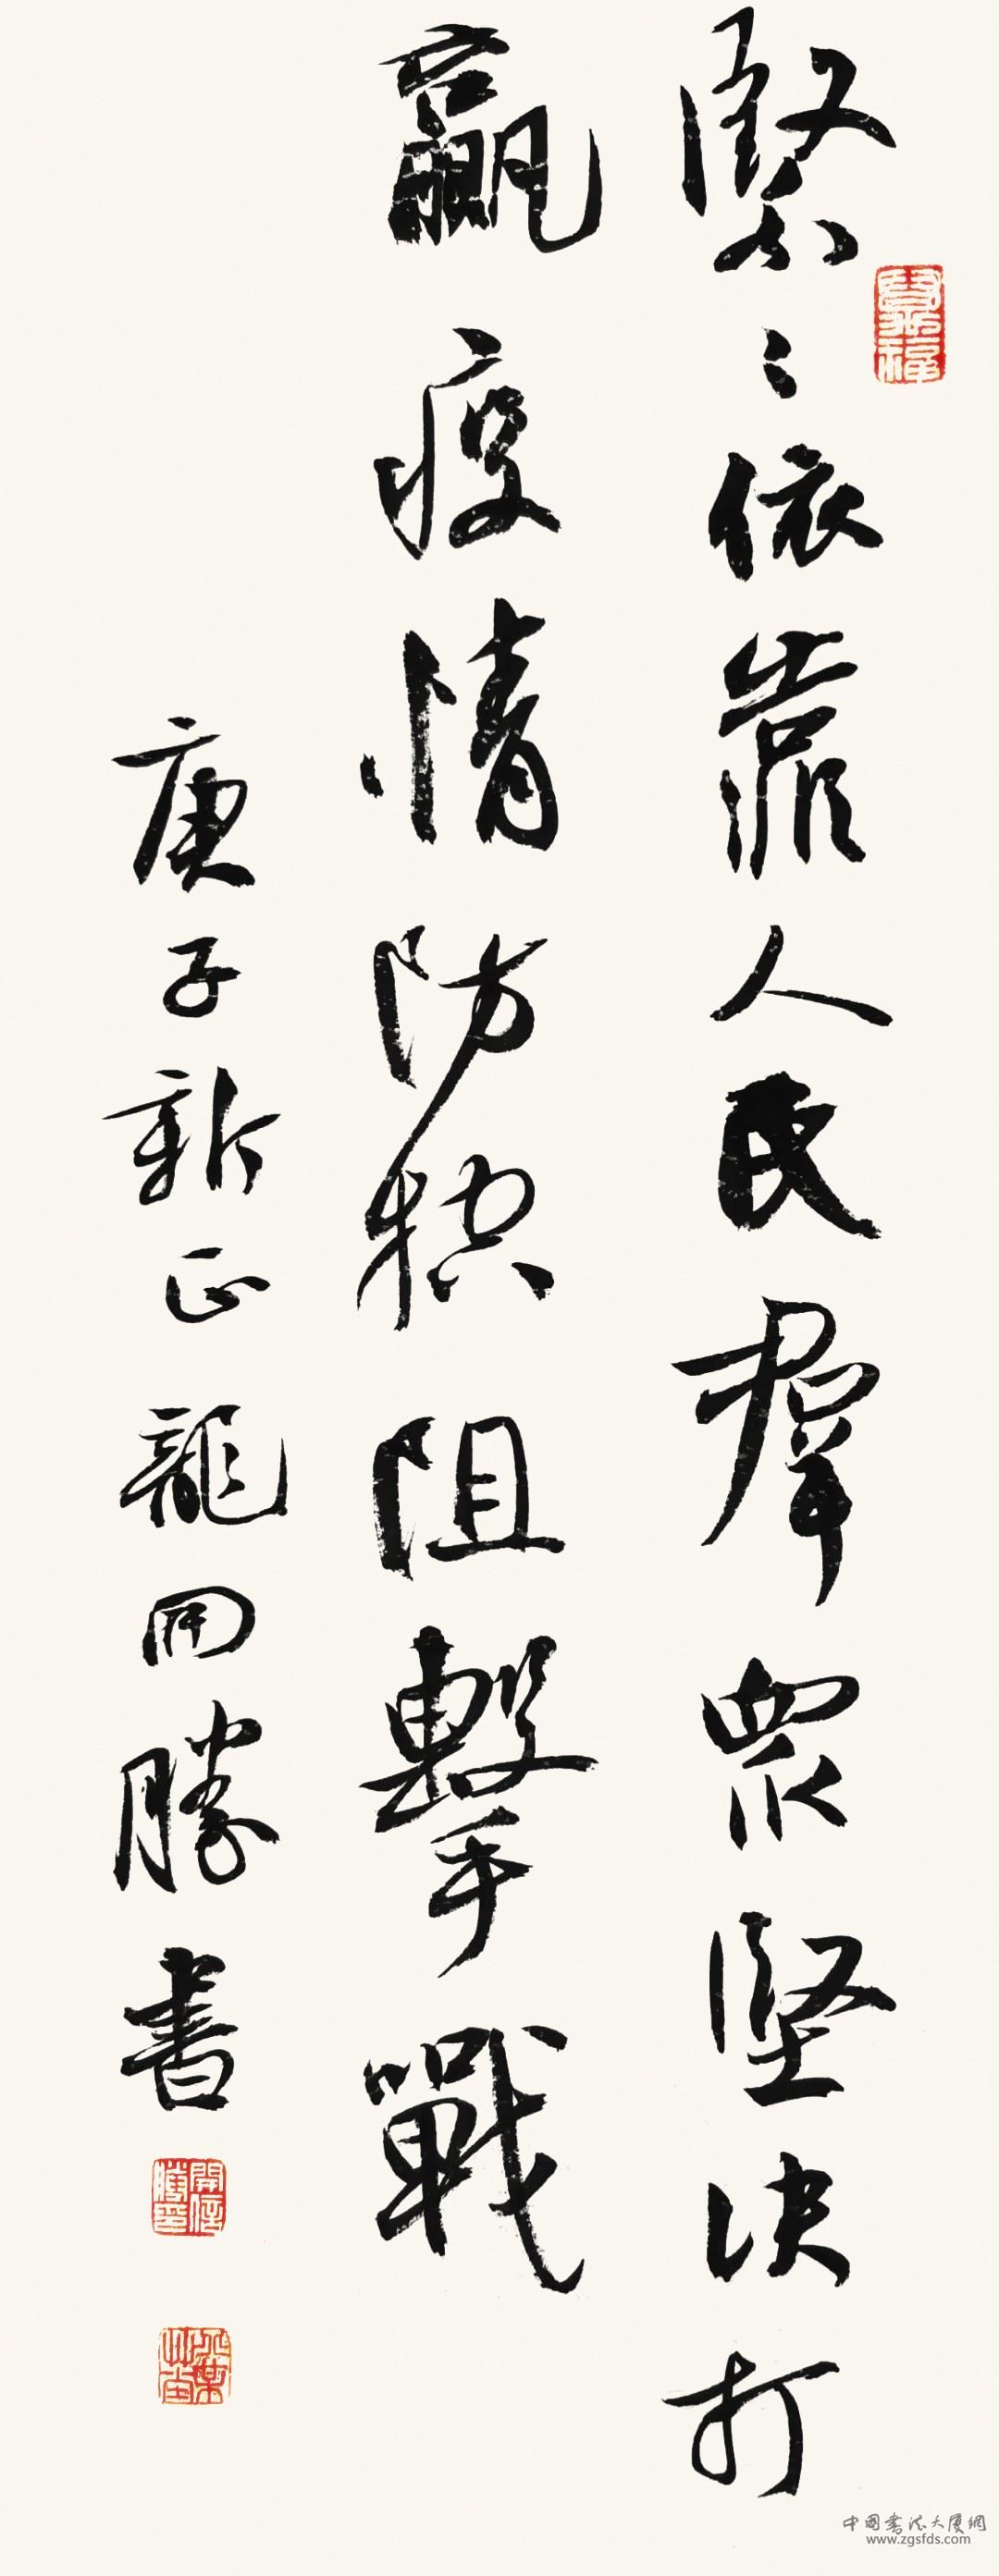 緊〻依靠人民羣眾堅決打
贏疫情防控阻擊戰
庚子新正龍開勝書
中國書法大厦網
www.zgsfds.com